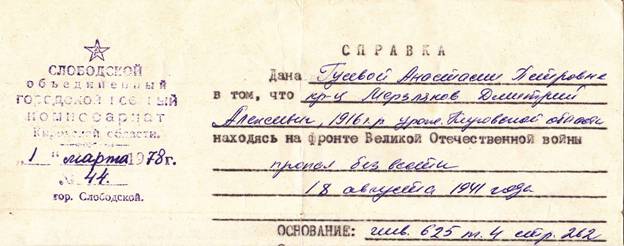 СЛОБОДСКОЙ
объединенный
городской военный
комиссариат
Кировской области.
"1" марта 1978 г.
№ 44.
гор. Слободской.
СПРАВКА
Дана Гусевой Анастасии Петровне
в том, что кр-ц Мерзляков Дмитрий
Алексеевич, 1916 г.р. урож. Кировской области
находясь на фронте Великой Отечественной войны
пропал без вести
18 августа 1941 года
ОСНОВАНИЕ: инв. 625 т. 4 стр. 262